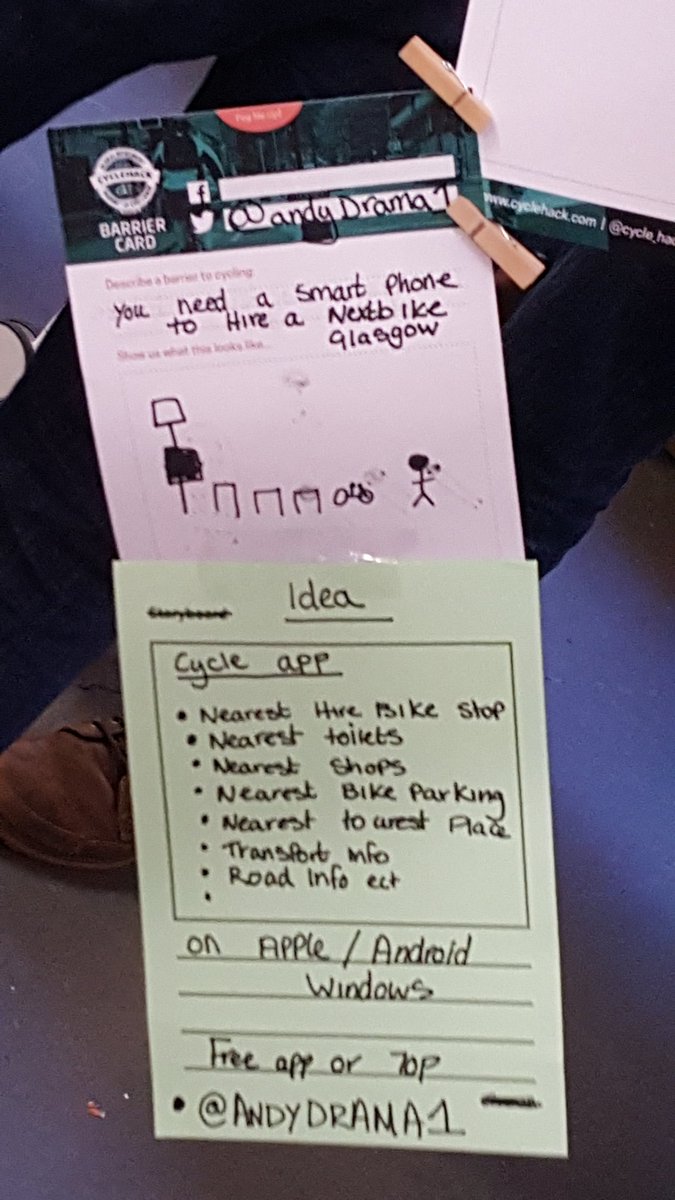 Peg Me Up!
CYCLEHACK
BARRIER
CARD
f
@andyDrama1
www.cyclehack.com / @cycle_hac
Describe a barrier to cycling:
You need a smart Phone
to Hire a Nextbike
Glasgow
Show us what this looks like...
Storyboard
Idea
Cycle app
• Nearest Hire Bike stop
• Nearest toilets
• Nearest Shops
• Nearest Bike Parking
• Nearest tourest Place
• Transport info
• Road info ect
•
on Apple / Android
Windows
Free app or 70p
• @ANDYDRAMA1